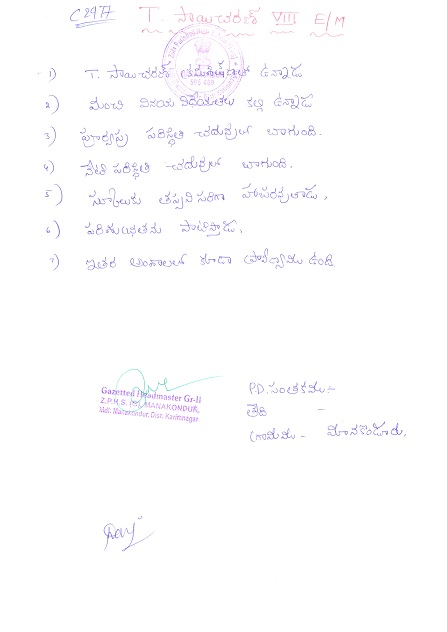 C2977
T. సాయిచరణ్ VIII E/M
1) T. సాయిచరణ్ ఉన్నాడు
2) మంచి వినయ విధేయతలు కల్గి ఉన్నాడు
3) పూర్వపు పరిస్థితి చదువులో బాగుంది.
4) నేటి పరిస్థితి చదువులో బాగుంది.
5) స్కూలుకు తప్పని సరిగా హాజరవుతాడు,
6) పరిశుభ్రతను పాటిస్తాడు,
7) ఇతర అంశాలలో కూడా ప్రావీణ్యము ఉంది
Gazetted Headmaster Gr-II
Z.P.H.S. MANAKONDUR,
Mdl: Manakondur, Dist. Karimnagar
P.D. సంతకము :-
తేది -
గ్రామము - మానకొండూరు,